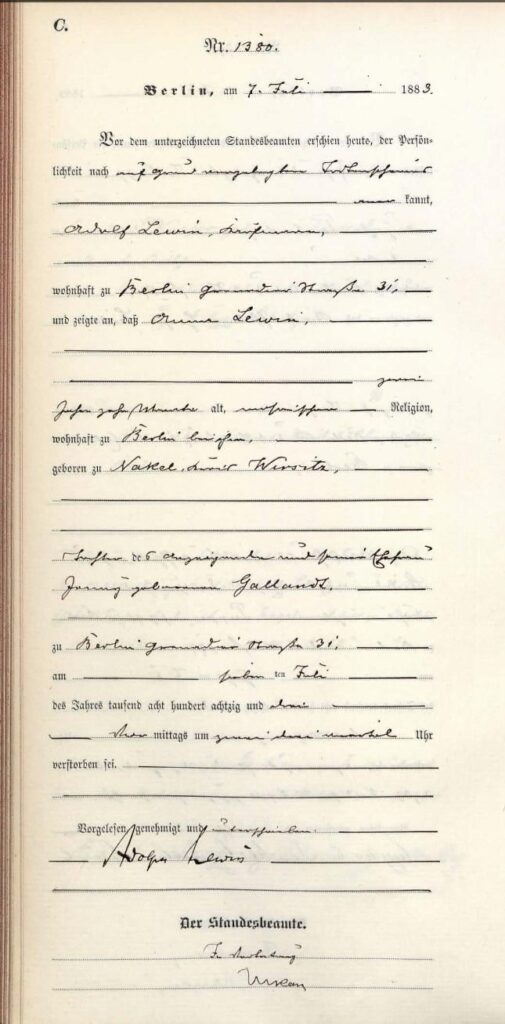 C.
Nr. 1380.
Berlin, am 7. Juli 1883.
Vor dem unterzeichneten Standesbeamten erschien heute, der Persön-
lichkeit nach auf Grund vorgelegten Todtenscheins
aner kannt,
Adolf Lewin, Kaufmann,
wohnhaft zu Berlin Grenadier Straße 31,
und zeigte an, daß Lewin,
zwei
Jahre zehn Monate alt, mosaischer Religion,
wohnhaft zu Berlin bei ihm,
geboren zu Nakel, Kreis Wirsitz,
Tochter des Anzeigenden und seiner Ehefrau
Jenny geborenen Gallandt,
zu Berlin Grenadier Straße 31,
am sieben ten Juli
des Jahres tausend acht hundert achtzig und drei
Vor mittags um zwei drei viertel Uhr
verstorben sei.
Vorgelesen, genehmigt und unterschrieben.
Adolph Lewin
Der Standesbeamte.
In Vertretung